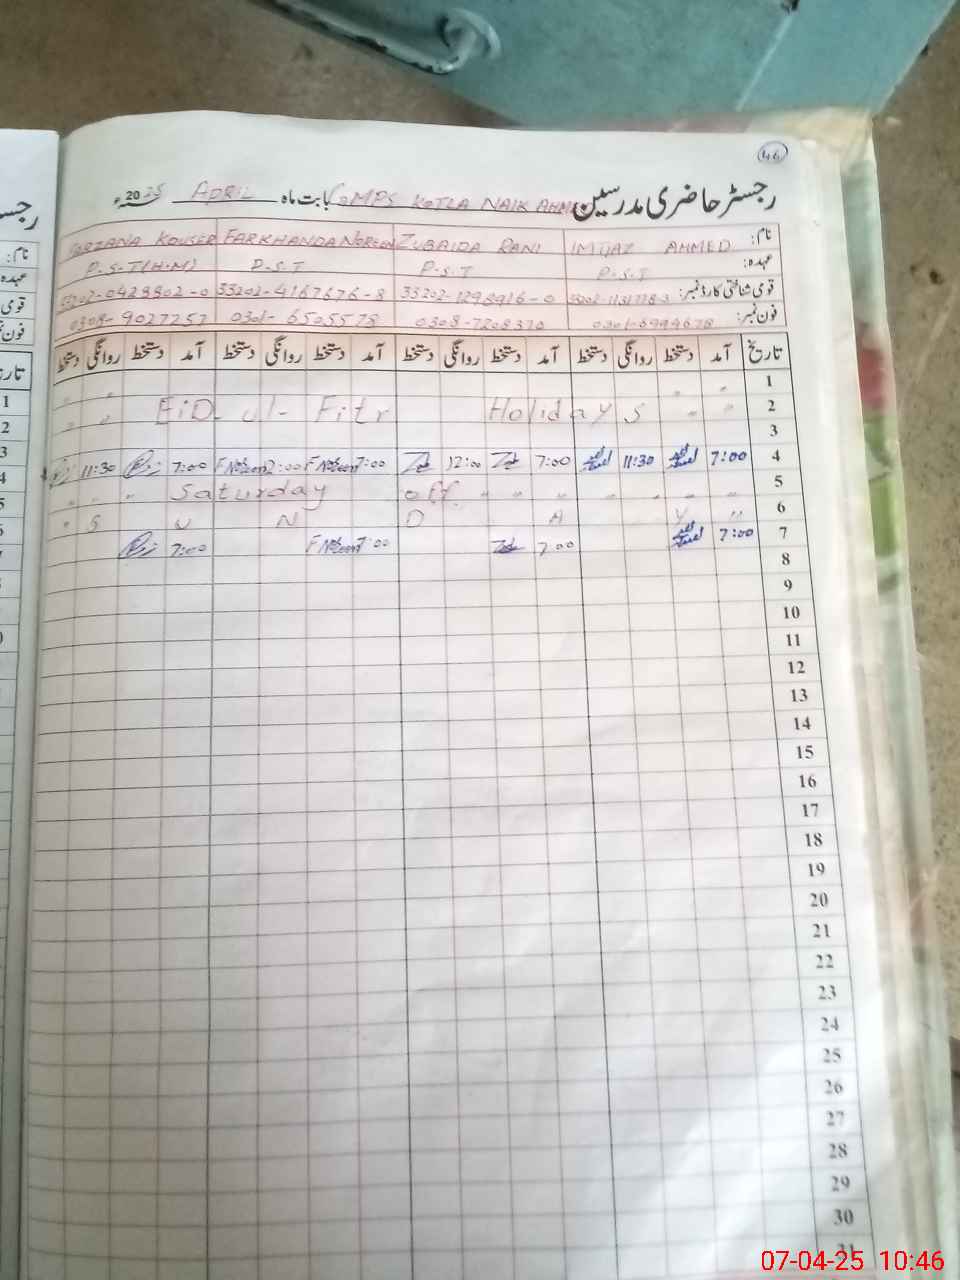 46
رجسٹر حاضری مدرسین GMPS KOTLA NAIK AHM بابت ماہ APRIL 2025ء
نام: IMTIAZ AHMED ZUBAIDA RANI FARKHANDA NOREEN FARZANA KOUSER
عہدہ: P.S.T P.S.T P.S.T P.S.T (H.M)
قومی شناختی کارڈ نمبر: 33202-4167676-8 33202-0429802-0
فون نمبر: 0301-6999678 0308-7208370 0301-6505578 0308-9027257
تاریخ آمد دستخط روانگی دستخط آمد دستخط روانگی دستخط آمد دستخط روانگی دستخط آمد دستخط روانگی دستخط
1 " "
2 " " EiD ul- Fitr Holidays " "
3
4 7:00 11:30 7:00 12:00 7:00 F Noreen 12:00 F Noreen 7:00 11:30
5 " " " Saturday off " " " " " " "
6 " S U N D A Y "
7 7:00 7:00 7:00 F Noreen 7:00
8
9
10
11
12
13
14
15
16
17
18
19
20
21
22
23
24
25
26
27
28
29
30
31
07-04-25 10:46
رجس
نام:
عہدہ
قومی
فون نمبر
تار
1
2
3
4
5
6
7